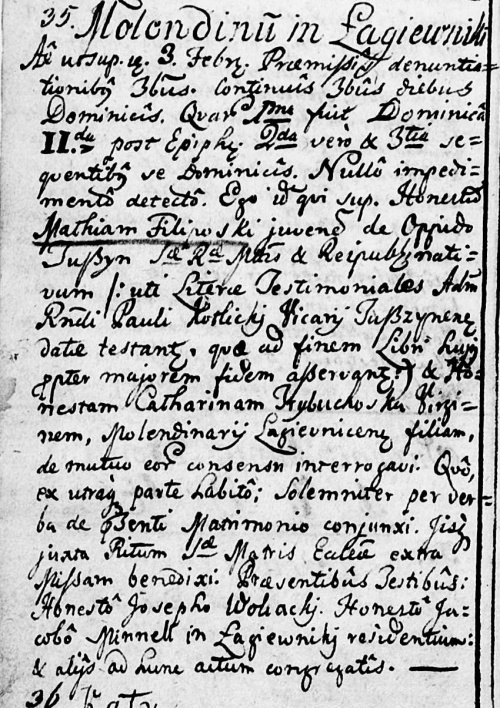 35. Molendinū in Łagiewniki
Aō utsup. 3. Febrz. Præmissis denuntia=
tionibꝫ 3bus. continuis 3bus diebus
Dominicis. Quarū 1ma fuit Dominica
II.da post Epiphę. 2da verò & 3tia se=
quentibꝫ se Dominicis. Nullô impedi=
mentô detectô. Ego id qui sup. Honestū
Mathiam Filipowski juvenē de Oppido
Tuszyn Sæ Ræ Mtis & Reipubę nati=
vum /: uti Literæ Testimoniales Adm
Rndi Pauli Koslickj Vicarij Tuszynenę
datæ testantę, quæ ad finem Libri hujꝰ
ꝓpter majorem fidem asservantę :/ & Ho=
nestam Catharinam Virgi=
nem, Molendinarij Łagievnicenę filiam,
de mutuo eoꝝ consensu interrogavi. Quô,
ex utraqꝫ parte habitô; Solemniter per ver=
ba de ꝓsenti Matrimonio conjunxi. Iisqꝫ
juxta Ritum Sæ Matris Eccliæ extra
Missam benedixi. Præsentibûs Testibûs:
Honestô Josepho Wolackj. Honestô Ja=
cobô Minnell in Łagiewnikj residentium:
& alijs ad hunc actum congregatîs. —
36